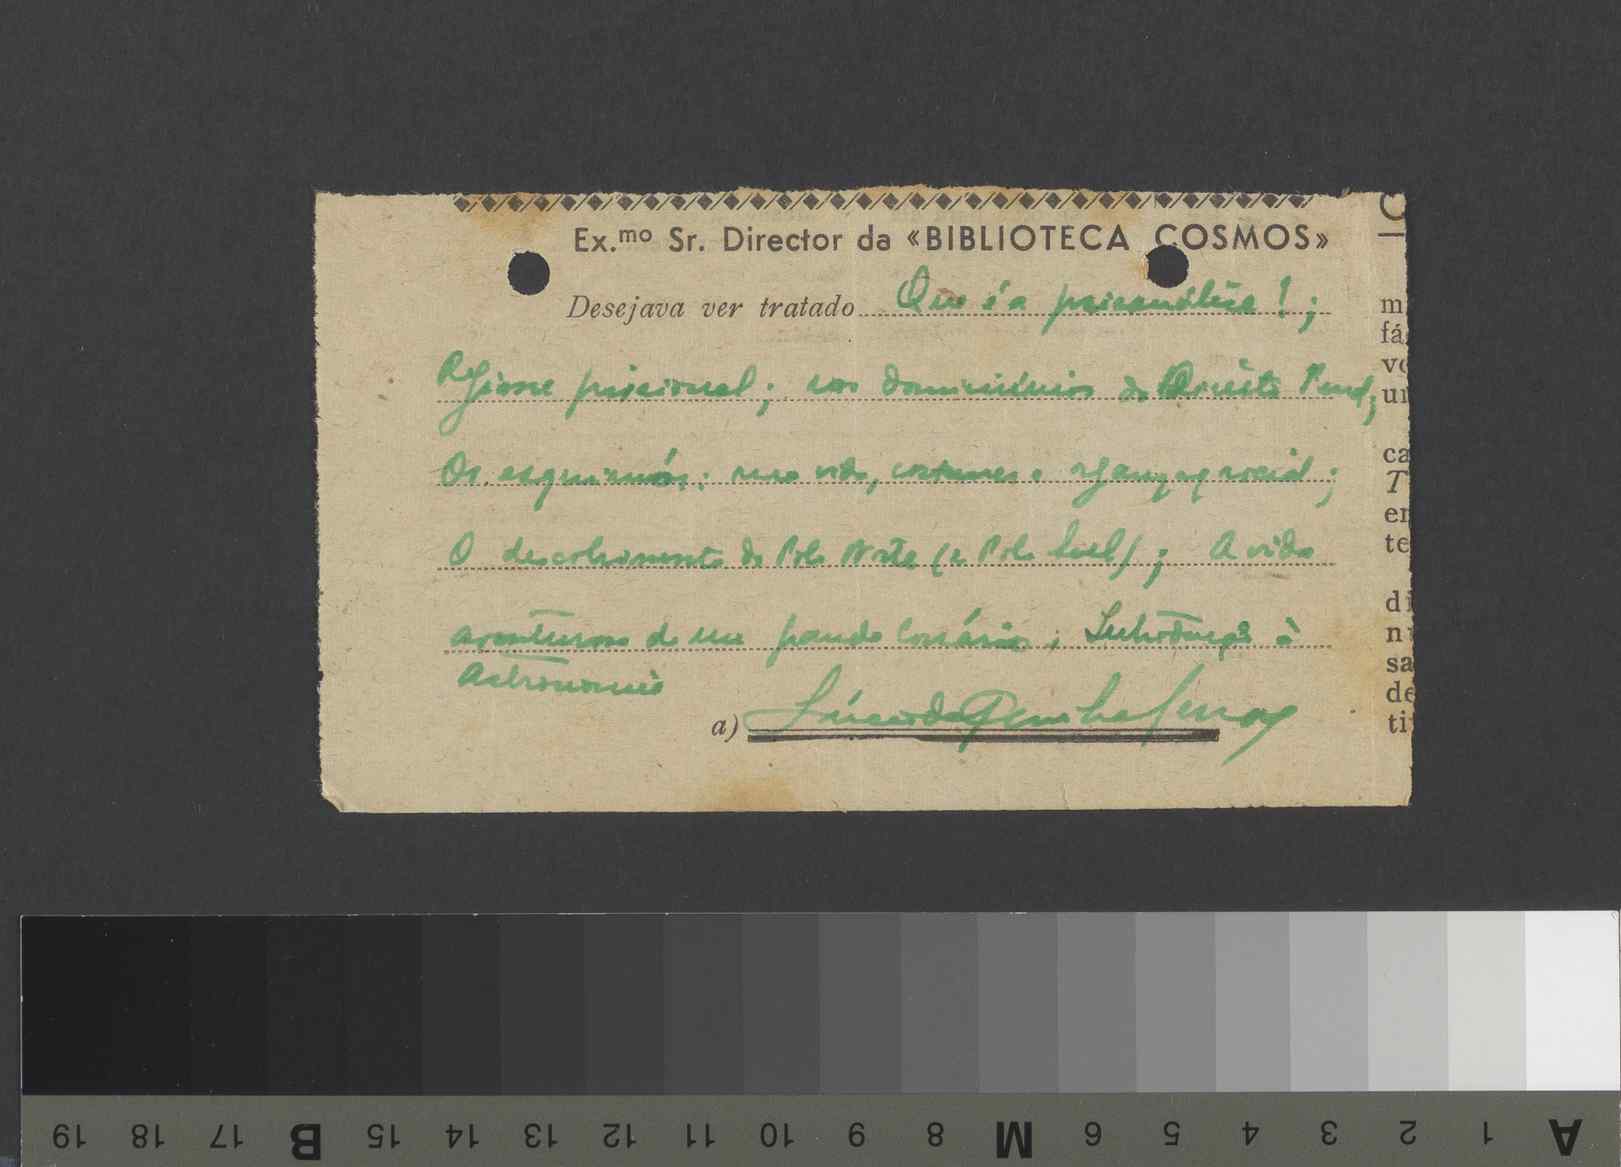 Ex.mo Sr. Director da «BIBLIOTECA COSMOS»
Desejava ver tratado Que é a psicanálise!;
Regime prisional; nos domínios do Direito Penal;
Os esquimós: sua vida, costumes e social;
O descobrimento do Polo Norte (e Polo Sul); A vida
aventurosa de um grande Corsário; Introdução à
Astronomia
a)
C
m
fá
vo
un
ca
T
en
te
di
nu
sa
de
tit
A 1 2 3 4 5 6 M 8 9 10 11 12 13 14 15 B 17 18 19